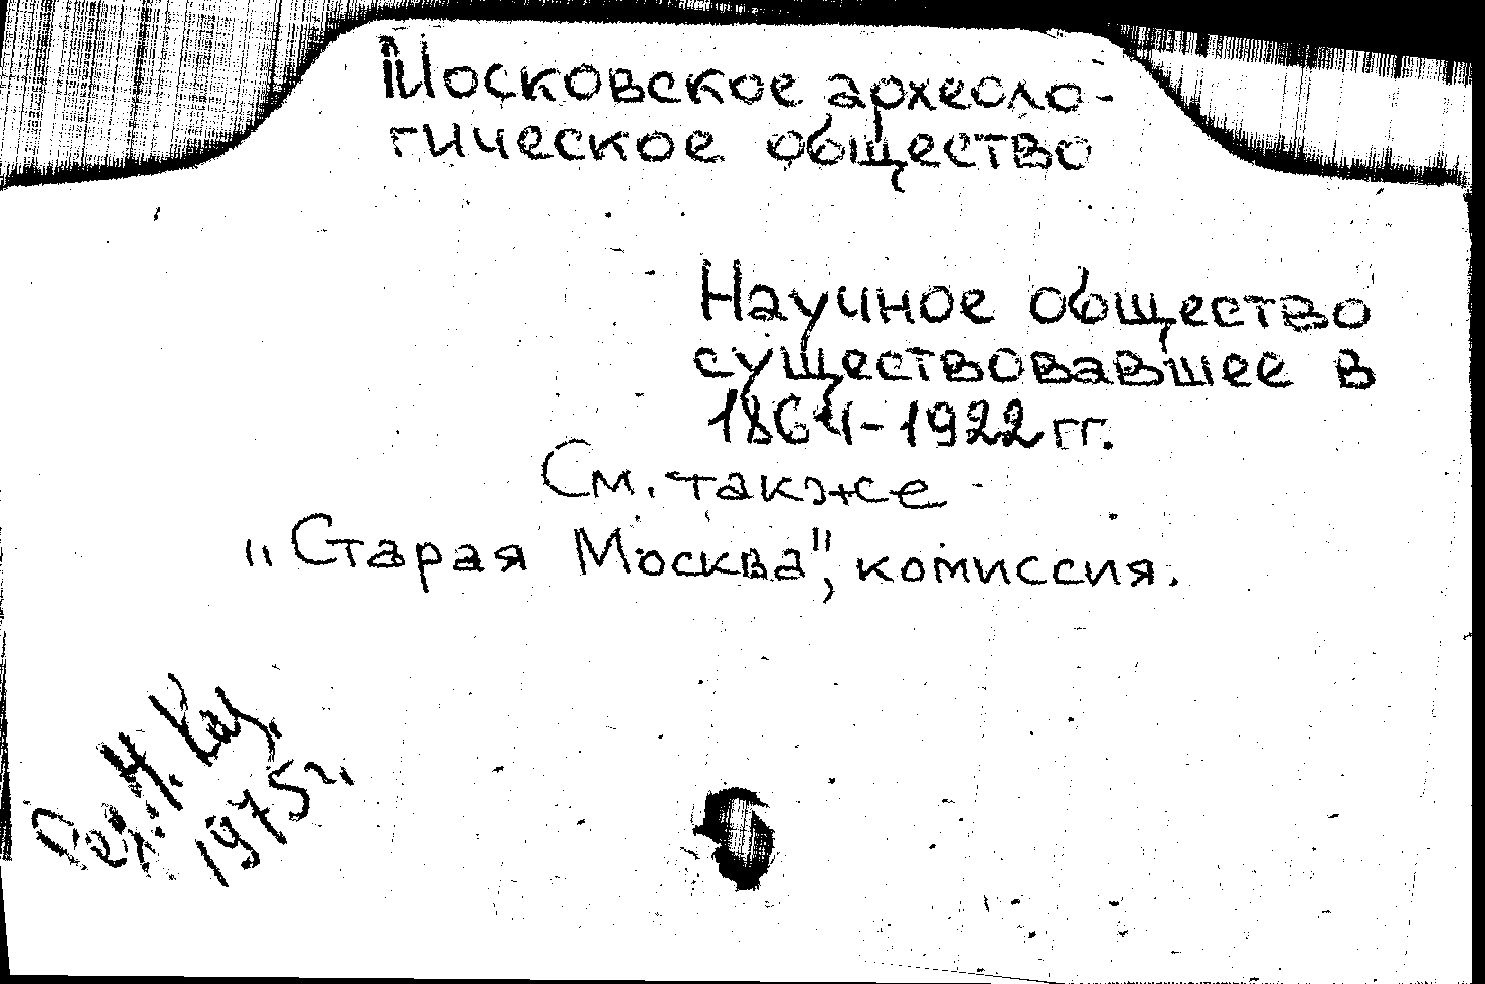 Московское археоло-
гическое общество
Научное общество
существовавшее в
1864-1922 гг.
См. также
"Старая Москва", комиссия.
Ред: Н. Кац.
1975 г.